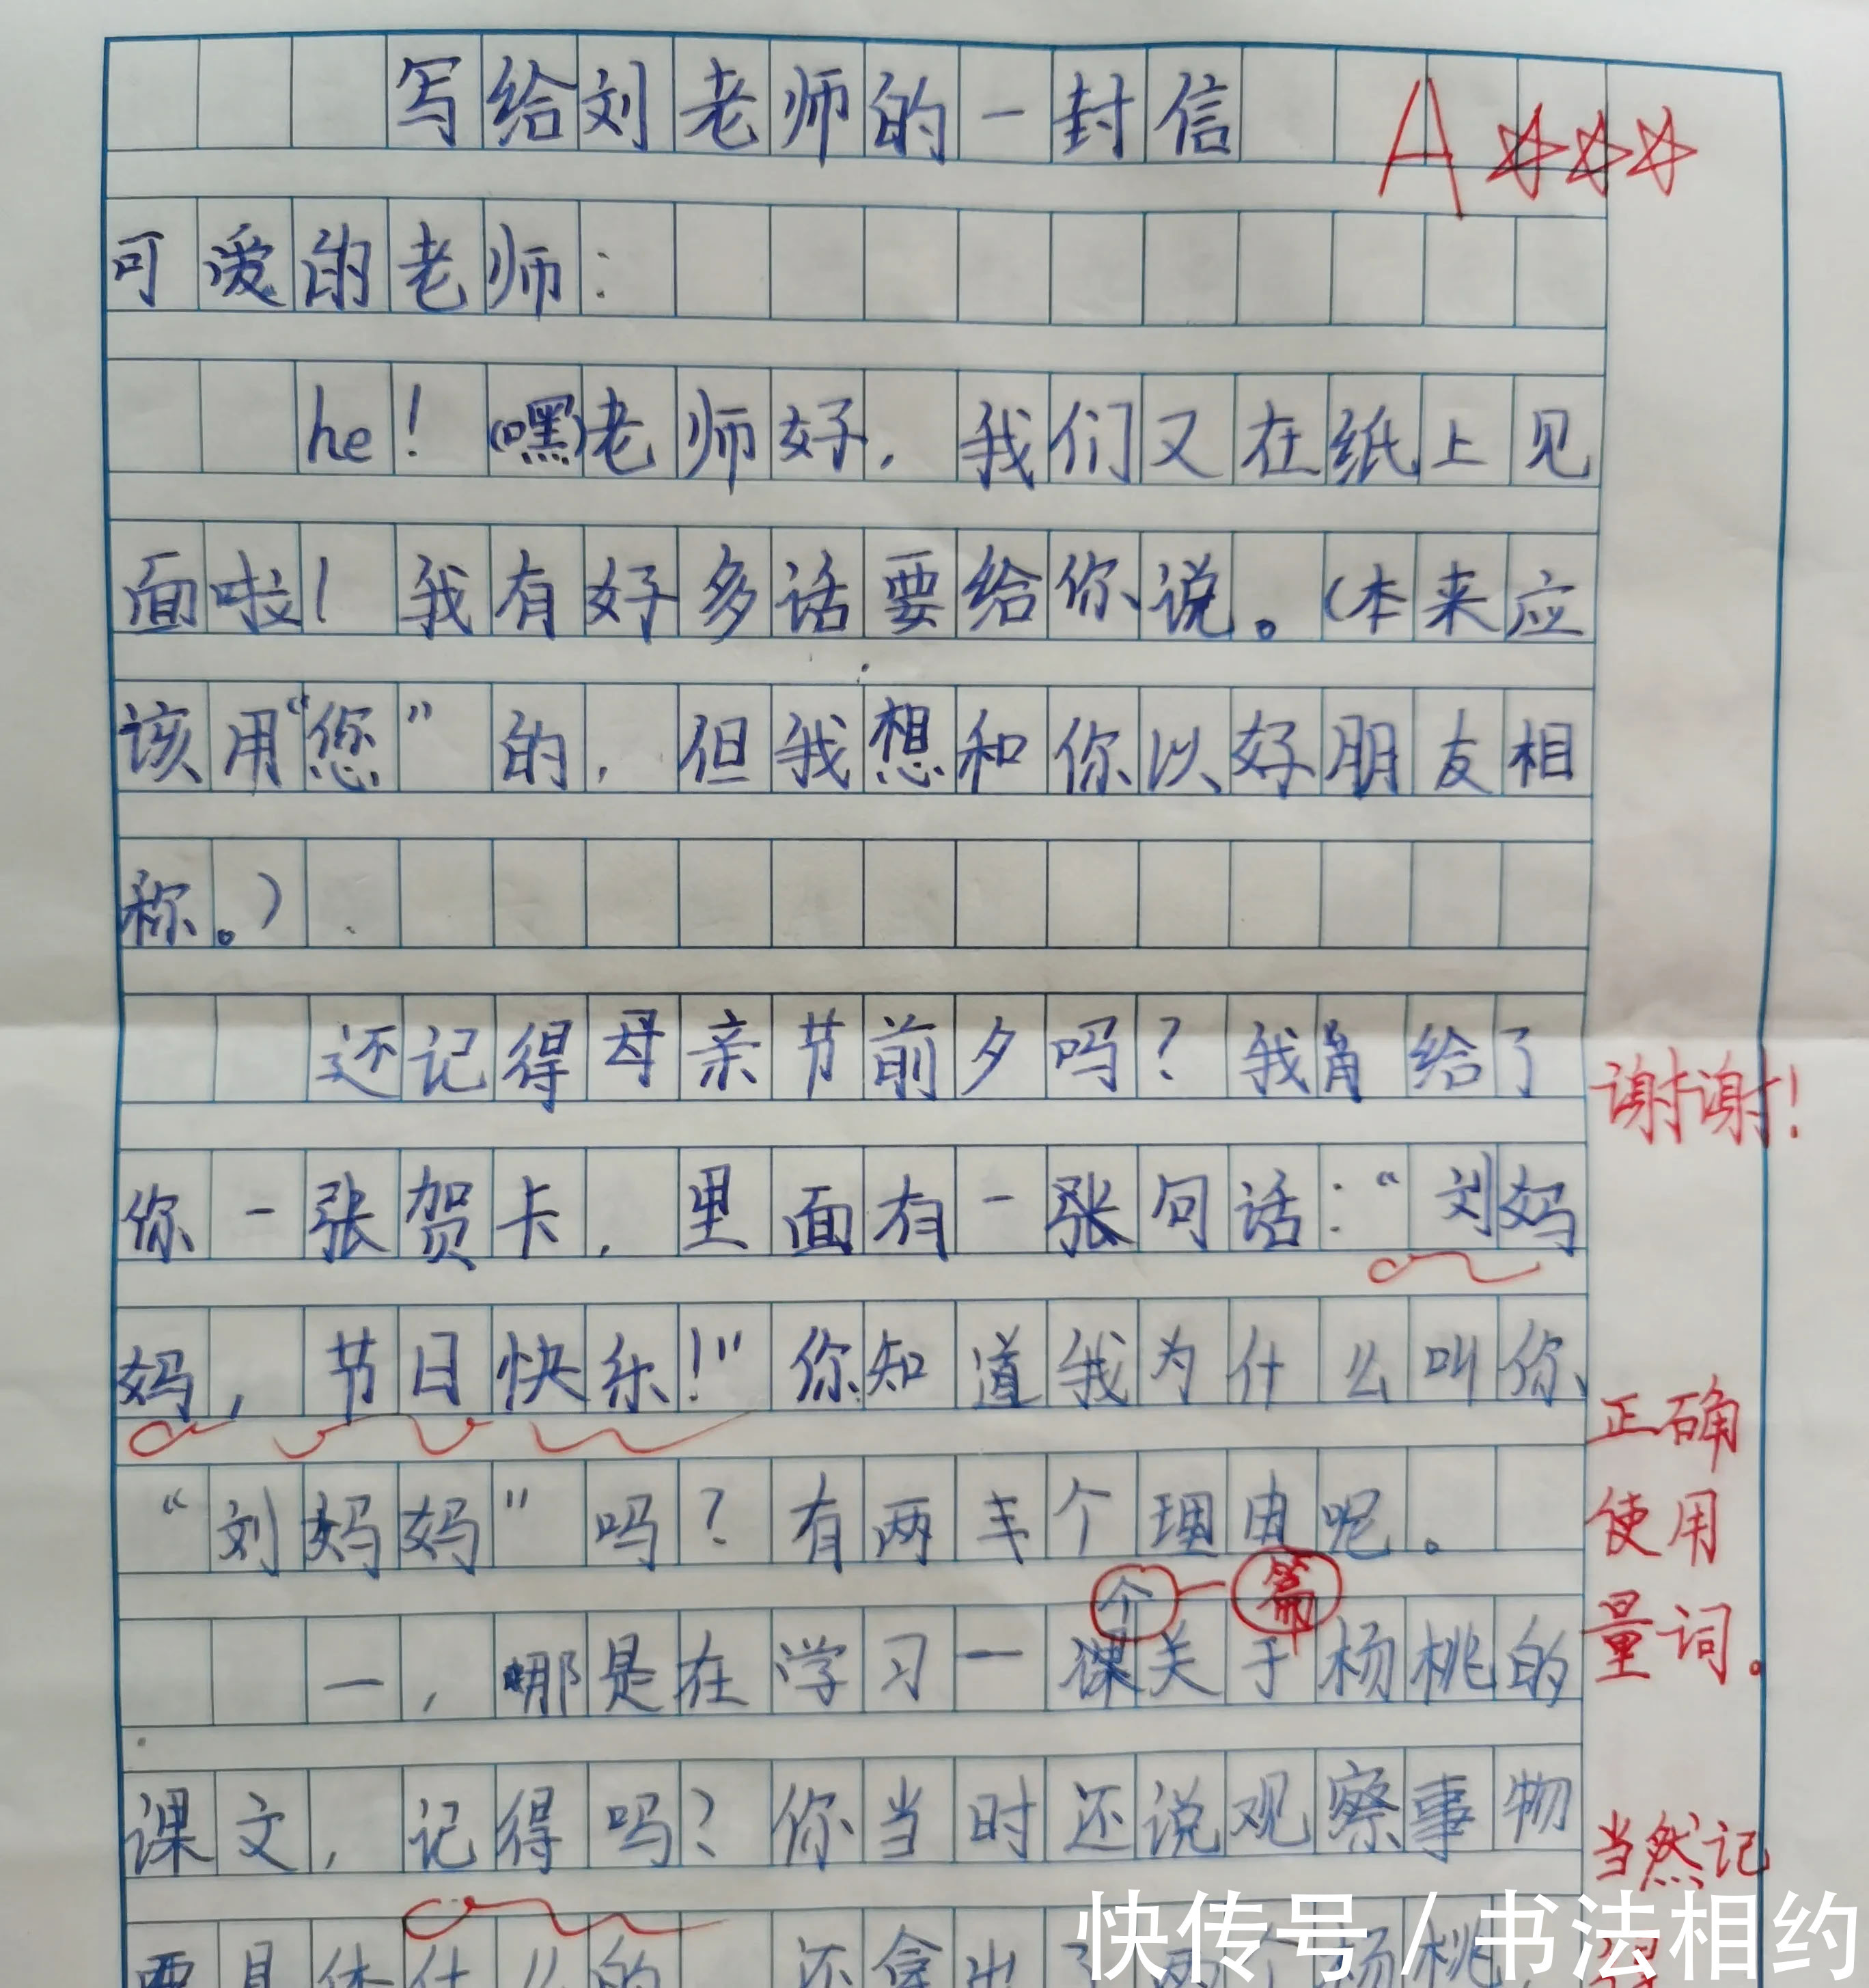 写给刘老师的一封信
A
可爱的老师：
he！(嘿)老师好，我们又在纸上见
面啦！我有好多话要给你说。（本来应
该用“您”的，但我想和你以好朋友相
称。）
还记得母亲节前夕吗？我肯给了
谢谢！
你一张贺卡，里面有一张句话：“刘妈
妈，节日快乐！”你知道我为什么叫你
“刘妈妈”吗？有两丰个理由呢。
正确
使用
量词。
个 篇
一，哪是在学习一课关于杨桃的
课文，记得吗？你当时还说观察事物
当然记
要具体什么的 还拿出了两个杨桃，
快传号 / 书法相约